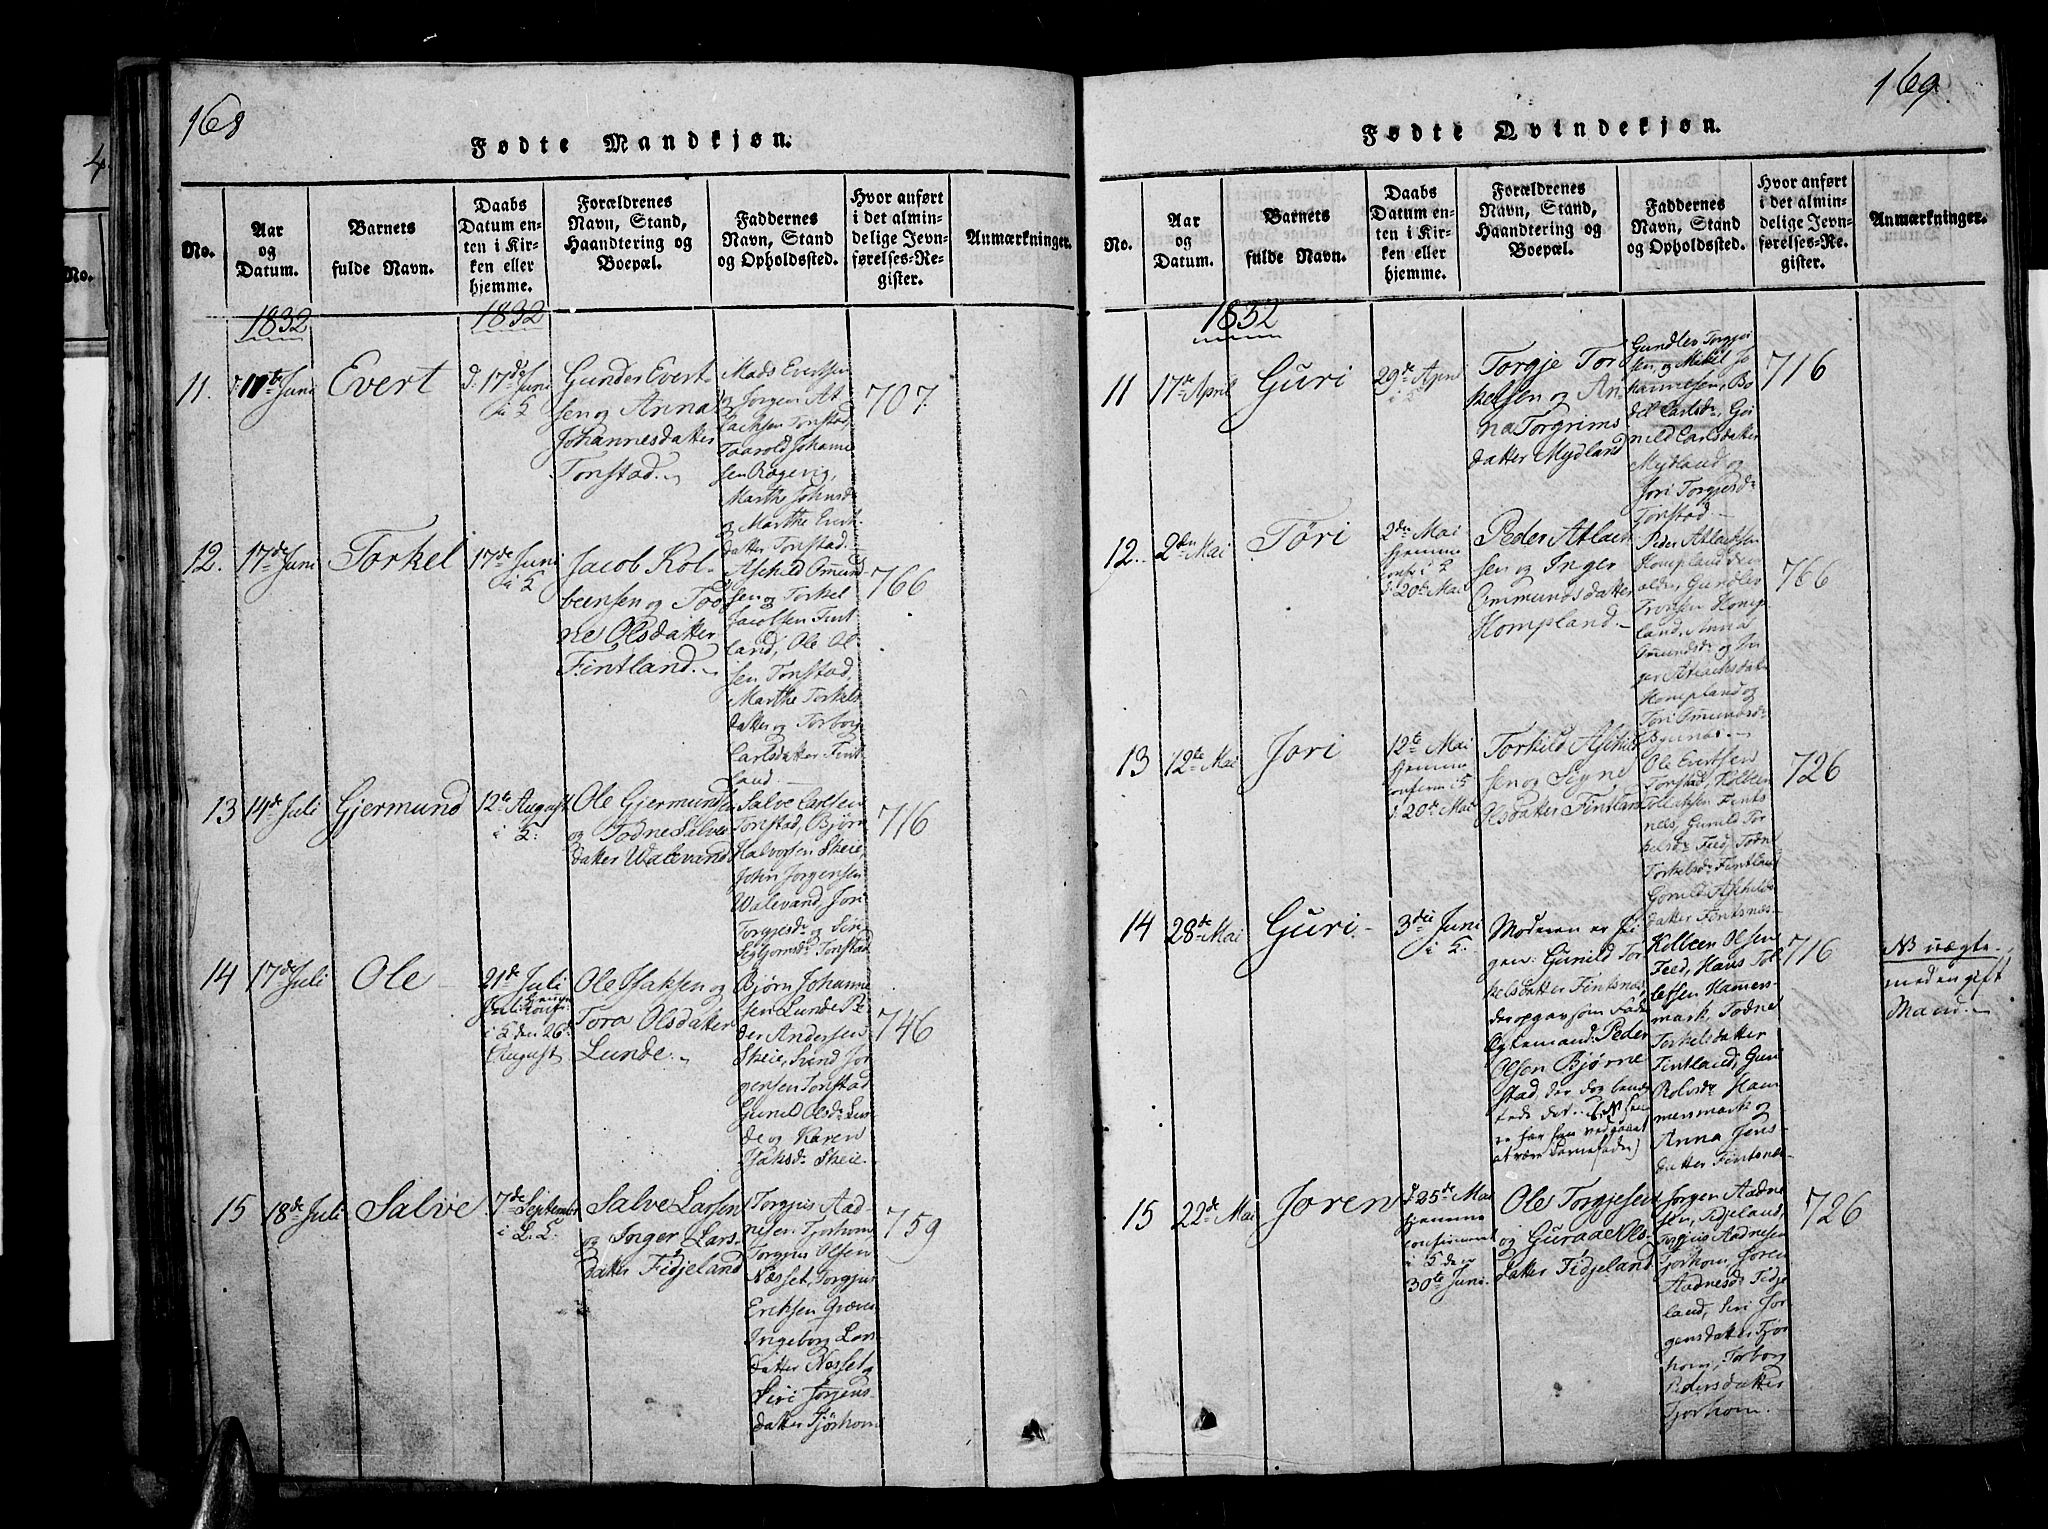 168
Fødte Mandkjøn.
No.
Aar
og
Datum.
Barnets
fulde Navn.
Daabs
Datum en-
ten i Kir-
ken eller
hjemme.
Forældrenes
Navn, Stand,
Haandtering og
Boepæl.
Faddernes
Navn, Stand
og Opholdssted.
Hvor anført
i det almin-
delige Jevn-
førelses-Re-
gister.
Anmærkninger.
1832
1832
11.
11te Juni
Evert
d: 17de Juni
i K
Gunder Evert-
sen og Anna
Johannesdatter
Tonstad.
Mads Evertsen
og Jørgen At-
lachsen Tonstad
Taarold Johanne
sen Røgevig,
Marthe Johnsd.
og Marthe Evert-
datter Tonstad.
707.
12.
17de Juni
Torkel
17de Juni
i K
Jacob Kol-
beensen og Tod
ne Olsdatter
Fintland.
Aschild Omund-
sen og Torkel
Jacobsen Fint
land, Ole Ol-
sen Tonstad,
Marthe Torkels
datter og Torborg
Carlsdatter Fint-
land
766
13
14de Juli
Gjermund
12te August
i K.
Ole Gjermunds
og Todne Salve
datter Walevand
Salve Carlsen
Tonstad, Bjørn
Halvorsen Skeie,
John Jørgensen
Walevand, Jori
Torgjesd. og Siri
Sigbjørnsd. Tonstad
716
14
17de Juli
Ole
21de Juli
i K den 26d
August
Ole Isaksen og
Tora Olsdatter
Lunde.
Bjørn Johanne
sen Lunde Pe-
der Andersen
Skeie, Svend Jør
gensen Tonstad
Gunild Olsd. Lun-
de og Karen
Isaksd. Skeie.
746
15
18de Juli
Salve
7de September
i L. K.
Salve Larsen
og Inger Lars-
datter Fidjeland
Torgjus Aad-
nesen Tjorhom
Torgjus Olsen
Næsset, Torgjus
Eriksen Græve
Ingeborg Lars
datter Næsset og
Siri Jørgens-
datter Tjørhom
759
169.
Fødte Qvindekjøn.
No.
Aar
og
Datum.
Barnets
fulde Navn.
Daabs
Datum en-
ten i Kir-
ken eller
hjemme.
Forældrenes
Navn, Stand,
Haandtering og
Boepæl.
Faddernes
Navn, Stand
og Opholdssted.
Hvor anført
i det almin-
delige Jevn-
førelses-Re-
gister.
Anmærkninger.
1832
11
17de April
Guri
29de April
i K
Torgje Tor
kelsen og An-
na Torgrims
datter Mydland
Gundler Torgju
sen, og Mikel Jo
hannesen, Bo
del Carlsd., Gu
nild Carlsdatter
Mydland og
Jori Torgjesd.
Tonstad.
716
12.
2den Mai
Tori
2den Mai
hjemme
conf. i K
d. 20de Mai
Peder Atlach
sen og Inger
Ommundsdatter
Hompland.
Peder Atlachsen
Hompland den
ældre, Gundler
Tronsen Homp
land, Anna
Omundsd. og In
ger Atlachsdat
Hompland og
Tori Omundsd.
766
13
12te Mai
Jori
12te Mai
hjemme
conferm. i K
d. 20de Mai
Torkild Aschild
sen og Signe
Olsdatter Fintland
Ole Evertsen
Tonstad, Kolbeen
Ollaksen Fints-
næs, Gunild Tor
kelsd. Fed, Todne
Torkelsd. Fintland
Gunild Aschilds
datter Fintsnæs-
726
14
28de Mai
Guri.
3die Juni
i K.
Moderen er Pi
gen: Gunild Tor
kelsdatter Fintsnæs,
der opgav som Fader
Egtemand: Peder
Olsen Bjørne
stad, der dog benæg
tede det.
at være Barnefader)
Kolbeen Olsen
Feed, Hans Tol
lefsen Hamer-
mark, Todne
Torkelsdatter
Fintland, Gun
Rolsd. Ham
mersmark og
Anna Jens-
datter Fintsnæs-
716
N uægte
med en gift
Mand.
15
22de Mai
Joren
d. 25de Mai
hjemme
confirmeret
i K den
30te Juni.
Ole Torgjesen
og Guraae Ols-
datter Fidjeland
Jørgen Aadne
sen, Fidjeland,
Torgjus Aadnesen
Tjorhom, Joren
Aadnesd. Fidje
land, Siri Jør-
gensdatter Tjor
hom, Torborg
Pedersdatter
Tjorhom.
726
4
No.